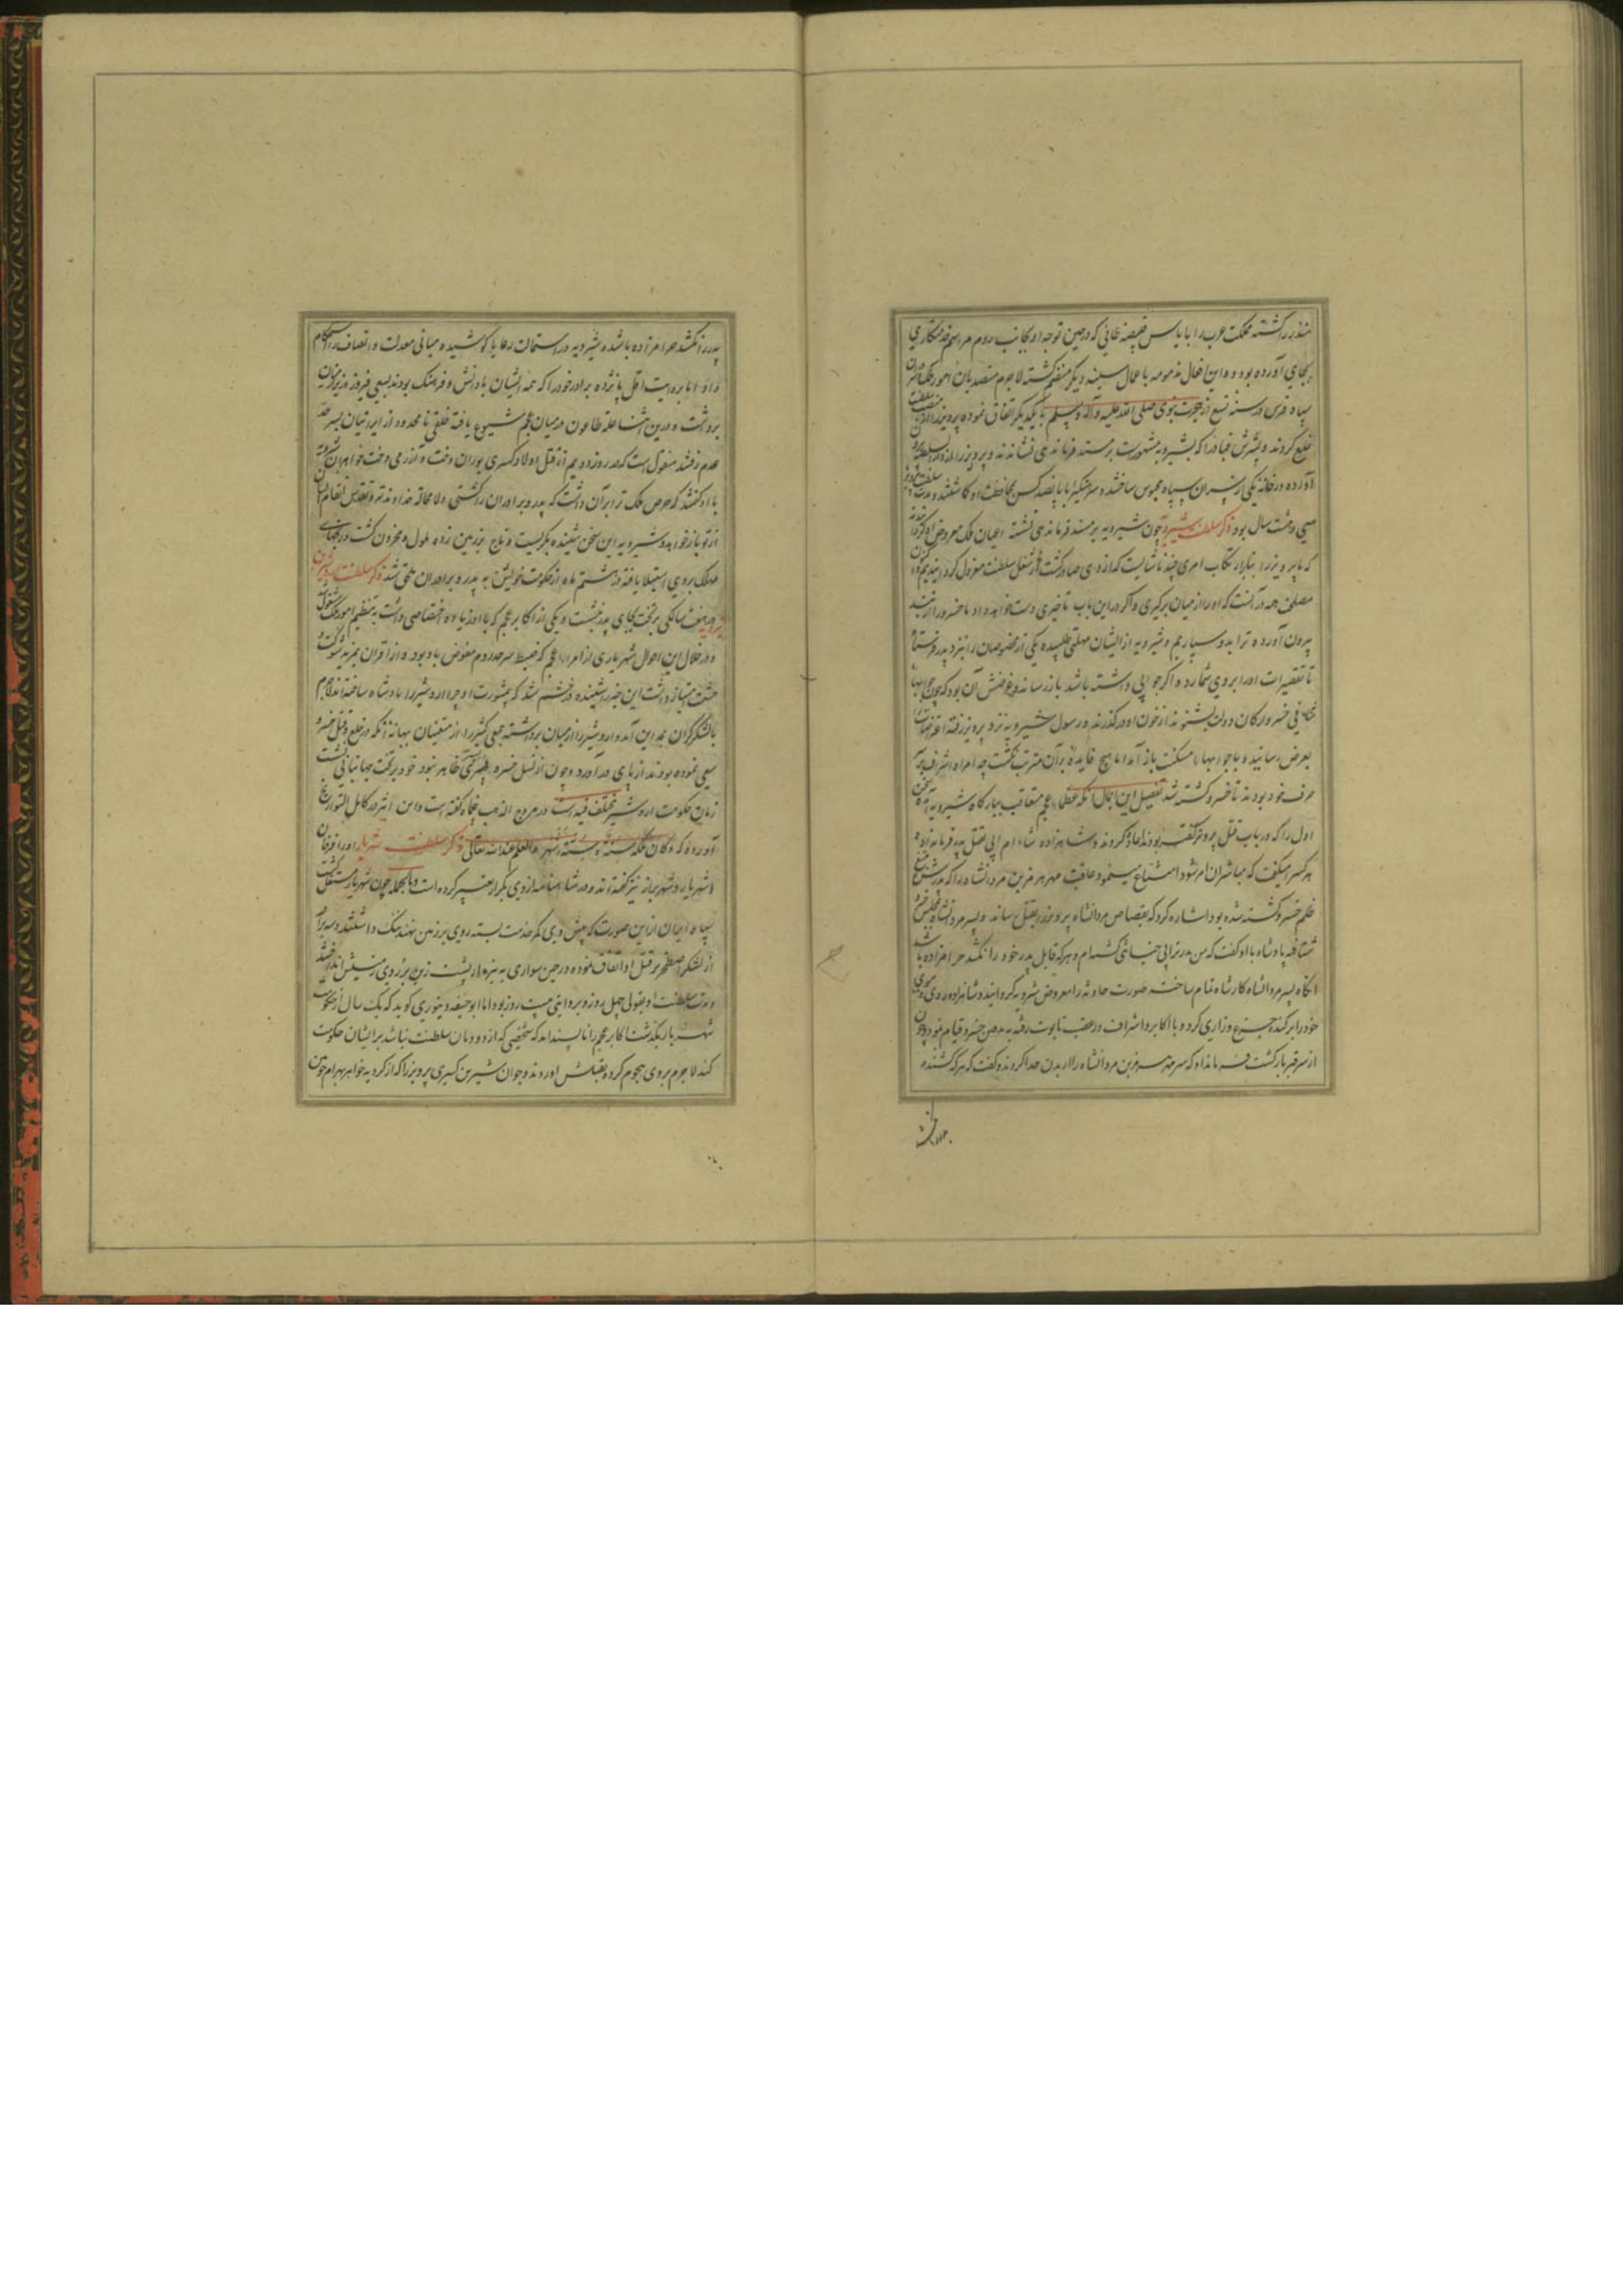 منذر درگذشته مملکت عرب را بایاس بن قبیصه طائی که در حین توجه او بجانب روم مراسم خدمتکاری
بجای آورده بود داد و این افعال مذمومه با اعمال سیئه دیگر منضم گشته لاجرم متصدیان امور ملک و سران
سپاه فرس در سنه تسع از هجرت نبوی صلی الله علیه و آله و سلم با یکدیگر اتفاق نموده پرویز را از منصب سلطنت
خلع کردند و پسرش قباد را که بشیرویه مشهورست بر مسند فرماندهی نشاندند و پرویز را از دار السلطنه بیرون
آورده در خانه یکی از سران سپاه محبوس ساختند و سرهنگی را با پانصد کس بمحافظت او گماشتند و مدت سلطنت پرویز
سی و هشت سال بود ذکر سلطنت شیرویه چون شیرویه بر مسند فرماندهی نشست اعیان ملک معروض او گردانیدند
که ما پرویز را بنابر ارتکاب امری چند ناشایست که از وی صادر گشت از شغل سلطنت معزول گردانیدیم و اکنون
مصلحت همه در آنست که او را از میان برگیری و اگر درین باب تاخیری دست خواهد داد ما خسرو را از بند
بیرون آورده ترا بدو سپاریم و شیرویه ازیشان مهلتی طلبیده یکی از مخصوصان را بنزد پدر فرستاد
تا تقصیرات او را بر وی شمارد و اگر جوابی داشته باشد باز رساند و غرضش آن بود که چون جوابهاء
شافی خسرو ارکان دولت بشنوند از خون او درگذرند و رسول شیرویه نزد پرویز رفته اعتراضات
بعرض رسانیده با جوابهاء مسکت باز آمد اما هیچ فایده بر آن مترتب نگشت چه امرا و اشراف بر
حرف خود بودند تا خسرو کشته شد تفصیل این اجمال آنکه عظماء عجم متعاقب ببارگاه شیرویه آمده سخن
اول را که در باب قتل پرویز گفته بودند اعاده کردند و شاهزاده شاء ام ابی بقتل پدر فرمان داد
هر کس را میگفت که مباشر آن امر شود امتناع مینمود عاقبت مهر هرمز بن مردانشاه را که پدرش بتیغ
ظلم خسرو کشته شده بود اشاره کرد که بقصاص مردانشاه پرویز را بقتل رساند و پسر مردانشاه بمجلس خسرو
شتافته پادشاه با او گفت که من پدر ترا بی جنایتی کشته‌ام و هر که قاتل پدر خود را نکشد حرامزاده باشد
آنگاه پسر مردانشاه کار شاه تمام ساخته صورت حادثه را معروض شیرویه گردانید و شاهزاده روی و موی
خود را برکنده جزع و زاری کرد و با اکابر و اشراف در عقب تابوت رفته بدفن خسرو قیام نمود و چون
از سر قبر بازگشت فرمان داد که سر مهر هرمز بن مردانشاه را از بدن جدا کردند و گفت که هر که کشنده
پدر را نکشد حرامزاده باشد و شیرویه در استمالت رعایا کوشیده مبانی معدلت و انصاف را استحکام
داد اما بروایت اقل پانزده برادر خود را که همه ایشان با دانش و فرهنگ بودند بسعی فیروز وزیر از میان
برداشت و درین اثنا علت طاعون در میان عجم شیوع یافته خلقی نامحدود از ایرانیان بسرحد
عدم رفتند منقولست که در روز دویم از قتل اولاد کسری بوران دخت و آزرمی دخت خواهران شیرویه
با او گفتند که حرص ملک ترا بر آن داشت که پدر و برادران را کشتی و لا محاله خداوند تعالی و تقدس انتقام ایشان
از تو باز خواهد و شیرویه این سخن شنیده بگریست و تاج بر زمین زده ملول و محزون گشت و مرضهای
مهلک بر وی استیلا یافته در هشتم ماه از حکومت خویش به پدر و برادران ملحق شد ذکر سلطنت اردشیر بن
شیرویه در هفت سالگی بر تخت بجای پدر نشست و یکی از اکابر عجم که با او زیاده اختصاصی داشت به تنظیم امور ملک مشغول گشت
و در خلال این احوال شهریاری از امراء عجم که ضبط سرحد روم مفوض باو بود و از اقران بمزید شوکت و
حشمت امتیاز داشت این خبر را شنیده در خشم شد که بی مشورت او چرا اردشیر را پادشاه ساخته‌اند لاجرم
با لشکر گران بمداین آمد و اردشیر را از میان برداشته جمعی کثیر را از متعینان ببهانه آنکه در خلع و قتل خسرو
سعی نموده بودند از پای درآورد و چون از نسل خسرو پسری ظاهر نبود خود بر تخت جهانبانی نشست
زمان حکومت اردشیر مختلف فیه است در مروج الذهب پنجماه گفته است و ابن اثیر در کامل التواریخ
آورده که و کان ملکه سنة و ستة اشهر و العلم عند الله تعالی ذکر سلطنت شهریار او را فرخان
و شهریار و شهربراز نیز گفته‌اند و در شاهنامه از وی بگراز تعبیر کرده است و بالجمله چون شهریار مستقل گشت
سپاه ایران ازین صورت که پیش وی کمر خدمت بسته روی بر زمین نهند ننگ داشتند و سه برادر
از لشکر اصطخر بر قتل او اتفاق نموده در حین سواری به نیزه از پشت زین بر روی زمینش انداختند
و مدت سلطنت او بقولی چهل روز و بروایتی بیست روز بود اما ابو حنیفه دینوری گوید که یک سال از حکومت
شهریار بگذشت اکابر عجم را ناپسند آمد که شخصی که از دودمان سلطنت نباشد بر ایشان حکومت
کند لاجرم بر وی هجوم کرده بقتلش آوردند و جوان شیر بن کسری پرویز را که از کردیه خواهر بهرام چوبین